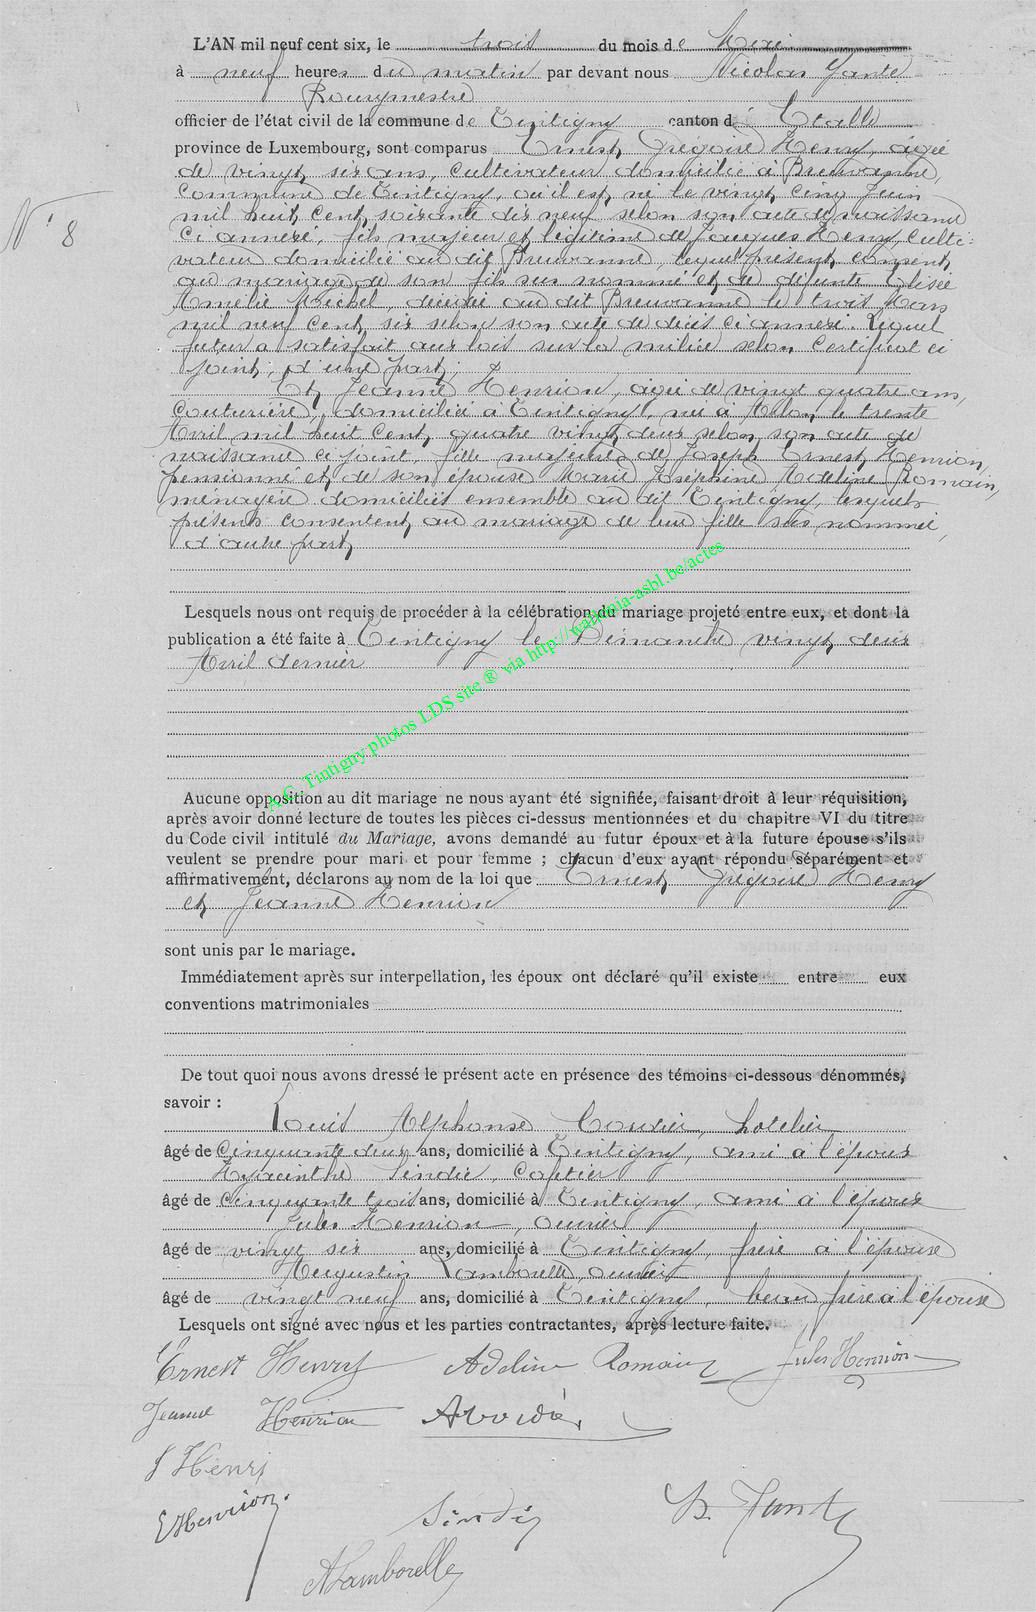 L'AN mil neuf cent six, le trois du mois de Mai
à neuf heures du matin par devant nous Nicolas
Bourgmestre
officier de l'état civil de la commune de Tintigny canton d' Etalle
province de Luxembourg, sont comparus Ernest Grégoire Henry, agé
de vingt six ans, cultivateur domicilié à Breuvanne,
commune de Tintigny, où il est né le vingt cinq Juin
mil huit cent soixante dix neuf selon son acte de naissance
ci annexé, fils majeur et légitime de Jacques Henry, culti-
vateur domicilié au dit Breuvanne, lequel présent consent
au mariage de son fils sus nommé et de défunte Elisée
Amélie Michel, décédée au dit Breuvanne le trois Mars
mil neuf cent six selon son acte de décès ci annexé. Lequel
futur a satisfait aux lois sur la milice selon certificat ci
joint, d'une part;
Et Jeanne Henrion, agée de vingt quatre ans,
couturière, domiciliée à Tintigny, née à le trente
Avril mil huit cent quatre vingt deux selon son acte de
naissance ci joint, fille majeure de Joseph Ernest Henrion,
pensionné et de son épouse Marie Joséphine Adeline Romain,
ménagère domiciliés ensemble au dit Tintigny, lesquels
présents consentent au mariage de leur fille sus nommée,
d'autre part
Lesquels nous ont requis de procéder à la célébration du mariage projeté entre eux, et dont la
publication a été faite à Tintigny le Dimanche vingt deux
Avril dernier
A.C. Tintigny photos LDS site ® via http://wallonia-asbl.be/actes
Aucune opposition au dit mariage ne nous ayant été signifiée, faisant droit à leur réquisition,
après avoir donné lecture de toutes les pièces ci-dessus mentionnées et du chapitre VI du titre
du Code civil intitulé du Mariage, avons demandé au futur époux et à la future épouse s'ils
veulent se prendre pour mari et pour femme ; chacun d'eux ayant répondu séparément et
affirmativement, déclarons au nom de la loi que Ernest Grégoire Henry
et Jeanne Henrion
sont unis par le mariage.
Immédiatement après sur interpellation, les époux ont déclaré qu'il existe entre eux
conventions matrimoniales
De tout quoi nous avons dressé le présent acte en présence des témoins ci-dessous dénommés,
savoir :
Louis Alphonse hotelier
âgé de Cinquante deux ans, domicilié à Tintigny, ami à l'époux
Hyacinthe Sindic, Cafetier
âgé de Cinquante trois ans, domicilié à Tintigny, ami à l'époux
Jules Henrion, ouvrier
âgé de vingt six ans, domicilié à Tintigny, frère à l'épouse
Augustin Lamborelle, ouvrier
âgé de vingt neuf ans, domicilié à Tintigny, beau frère à l'épouse
Lesquels ont signé avec nous et les parties contractantes, après lecture faite.
N° 8
Ernest Henry Adeline Romain Jules Henrion
Jeanne Henrion
J Henry
E Henrion
Sindic
A Lamborelle